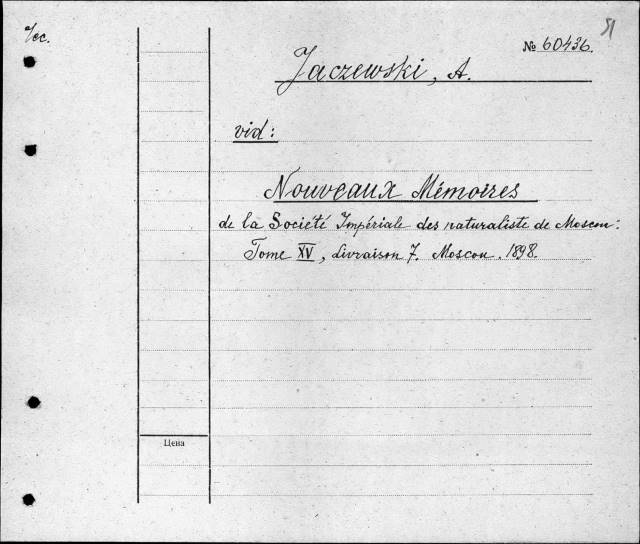 № 60436.
Jaczewski, A.
vid:
Nouveaux Mémoires
de la Société Impériale des naturaliste de Moscou:
Tome XV, Livraison 7. Moscou. 1898.
Цена